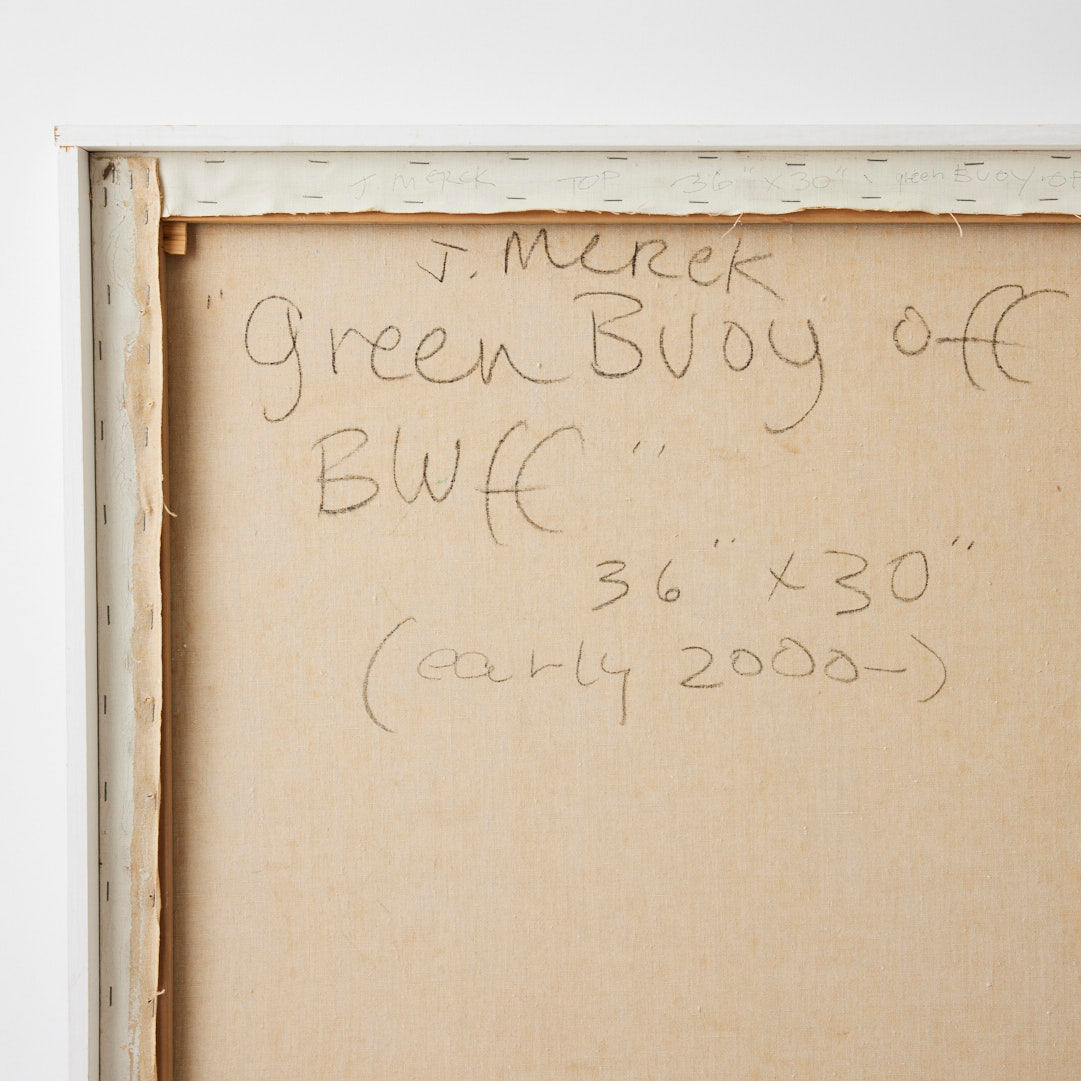 J MEREK TOP 36" X 30" green BUOY OF
J. MEREK
"green BUOY off
BWff"
36" x 30"
(early 2000-)